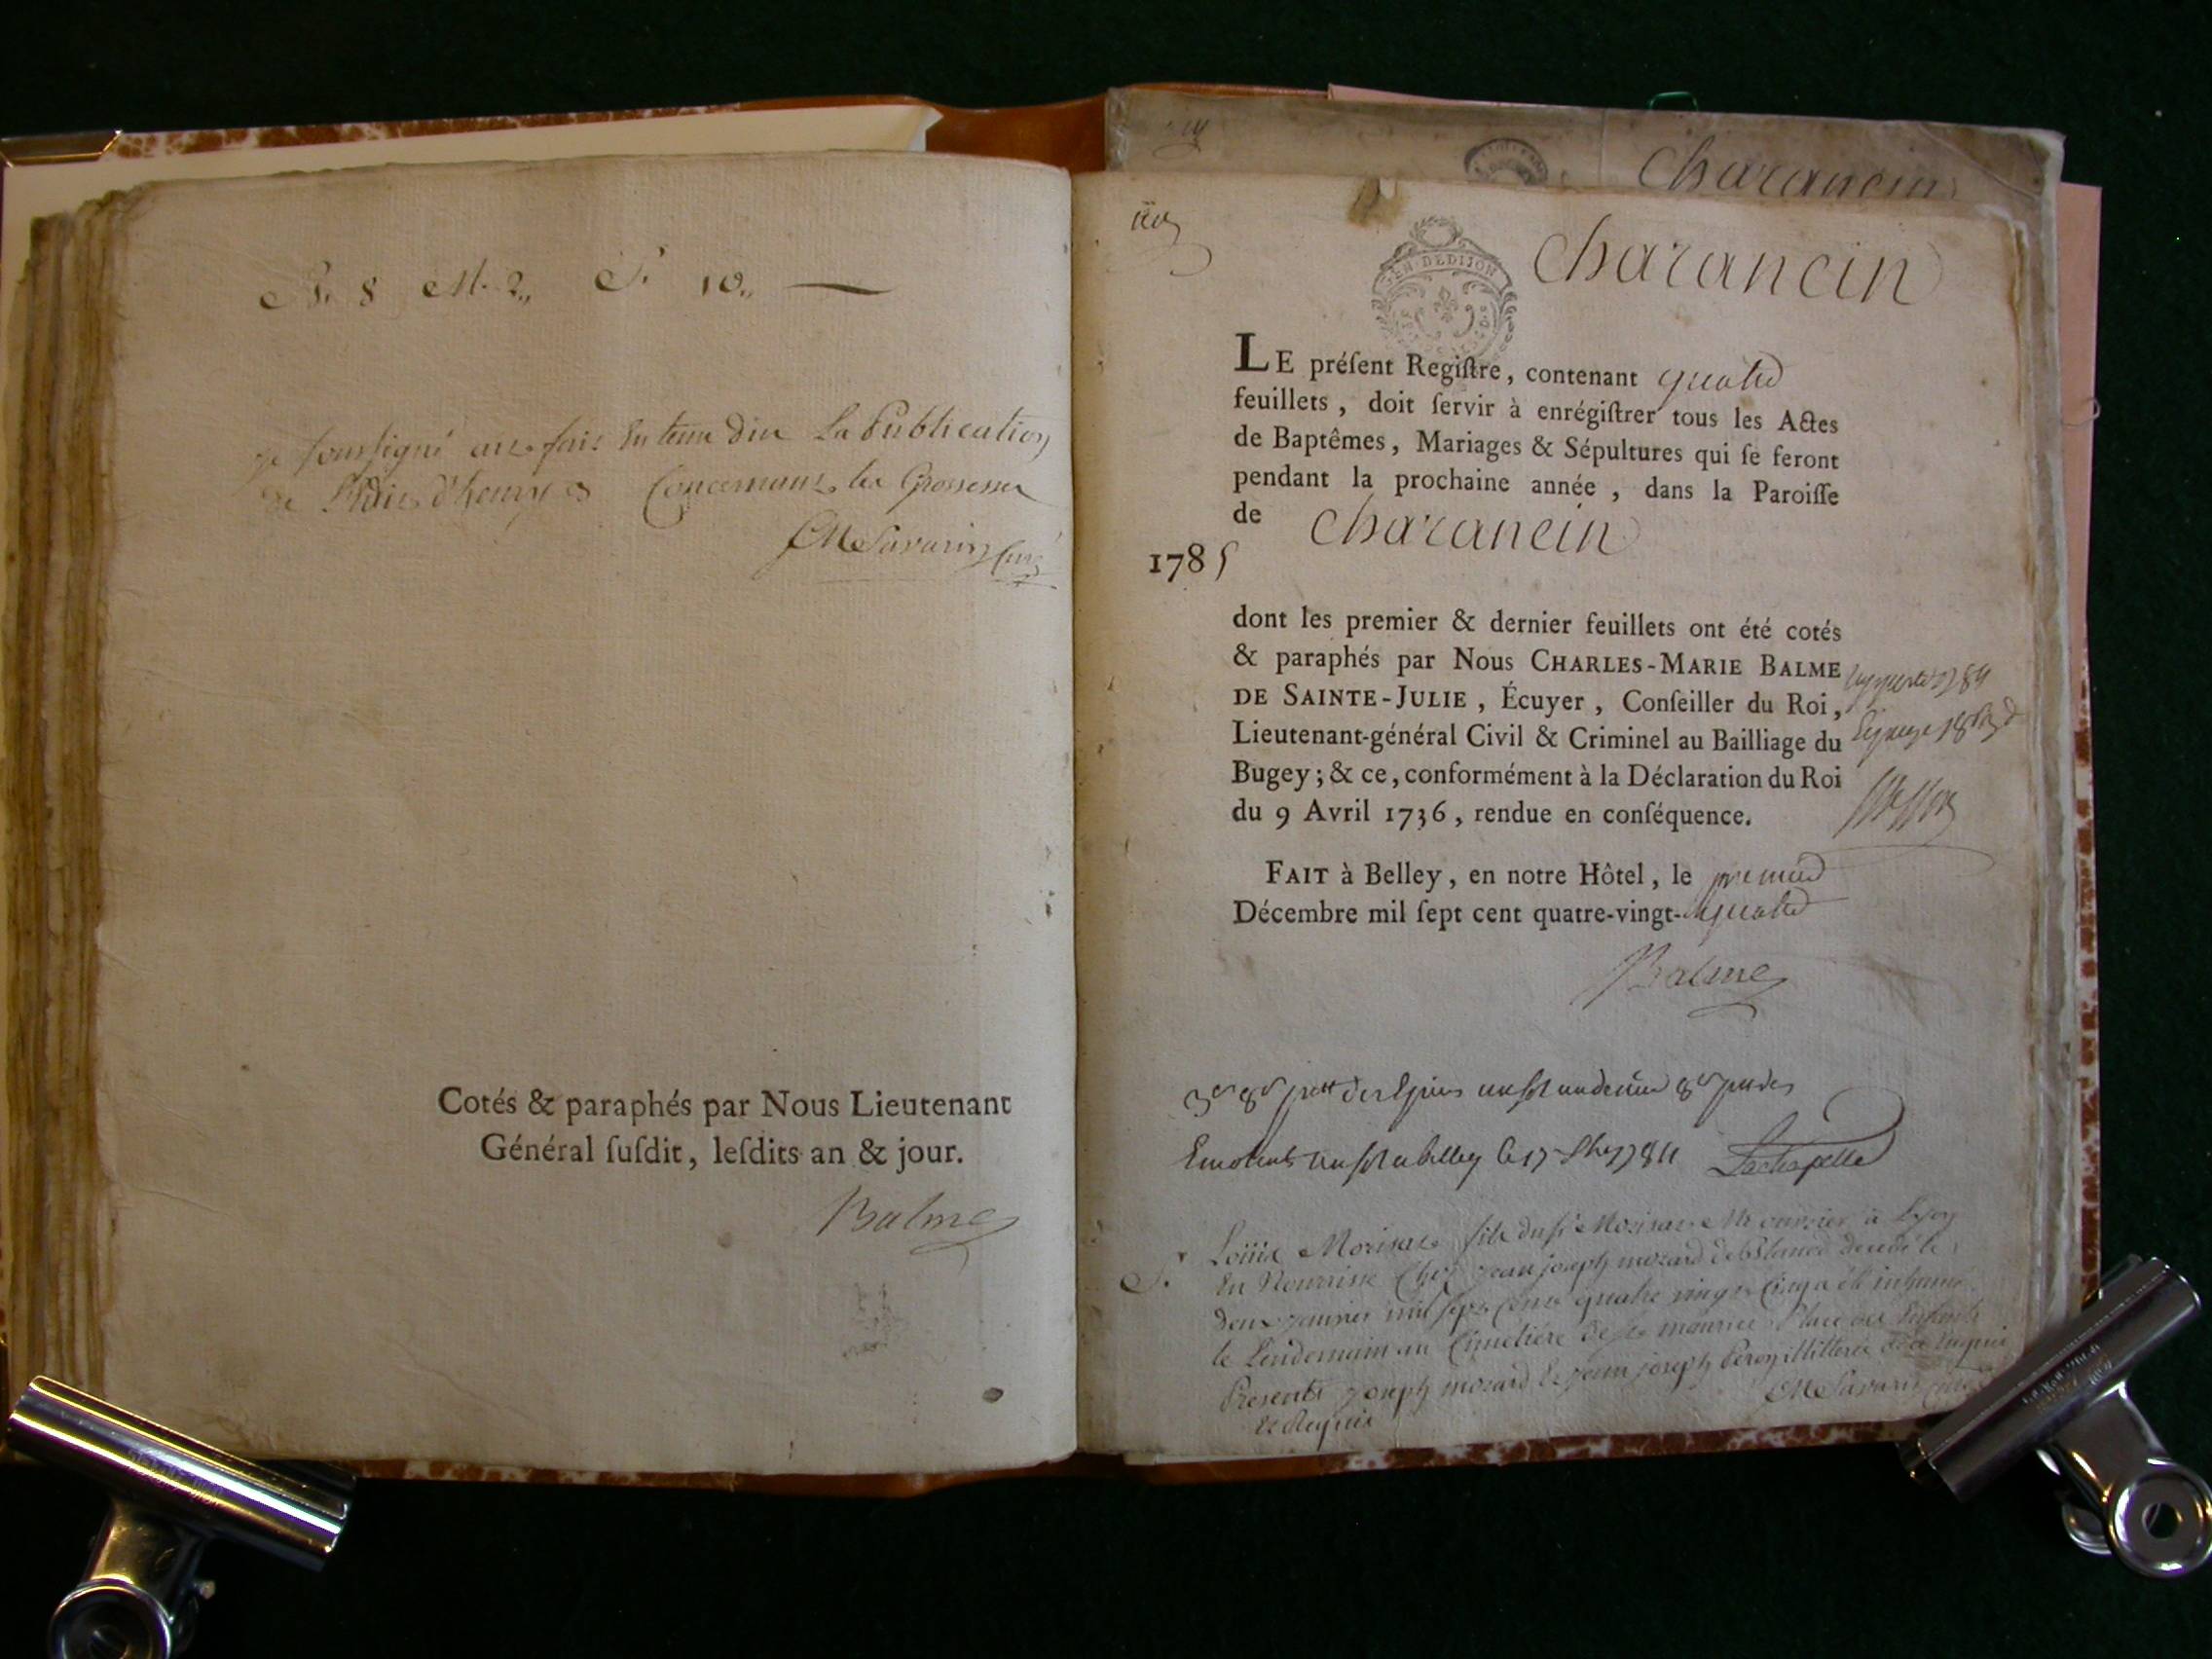 B. 8 M. 2,, S. 10,,
je soussigné avoir fait en tenu diu La Publication
de l'Edit d'henry 2 Concernant les Grossesses
CM Savarin Curé
Cotés & paraphés par Nous Lieutenant
Général ſuſdit, leſdits an & jour.
Balme
Charancin
GEN. DE DIJON
Charancin
LE préſent Regiſtre, contenant quatre
feuillets, doit ſervir à enrégiſtrer tous les Actes
de Baptêmes, Mariages & Sépultures qui ſe feront
pendant la prochaine année, dans la Paroiſſe
de Charancin
1785
dont les premier & dernier feuillets ont été cotés
& paraphés par Nous CHARLES-MARIE BALME
DE SAINTE-JULIE, Écuyer, Conſeiller du Roi,
Lieutenant-général Civil & Criminel au Bailliage du
Bugey; & ce, conformément à la Déclaration du Roi
du 9 Avril 1736, rendue en conſéquence.
FAIT à Belley, en notre Hôtel, le premier
Décembre mil ſept cent quatre-vingt-quatre
Balme
a belley le 17 1784 Lachapelle
S. Louis Morisat fils du sr Morisat Me ouvrier à Lyon
En Nourisse Chez jean joseph mozard de decede le
deux janvier mil sept cent quatre vingt Cinq a été inhumé
le Lendemain au Cimetière de st maurice Place des Enfants
Presents joseph mozard & jean joseph Peroz illitteré de ce enquis
CM Savarin Curé
& Requis